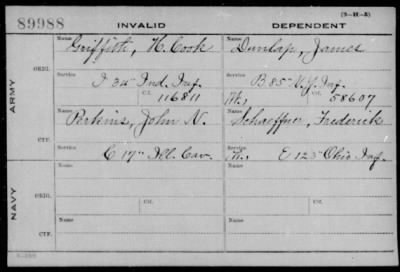 89988 INVALID DEPENDENT (3-H-3)
Name Griffith, H. Cook Name Dunlap, James
ORIG. Service I 34 Ind. Inf. Service B 85 N.Y. Inf.
Ctf. 116811 W., Ctf. 58607
ARMY
Name Perkins, John N. Name Schaeffner, Frederick
CTF. Service C 17" Ill. Cav. Service W., E 125 Ohio Inf.
Name Name
ORIG. Service Service
Ctf. Ctf.
NAVY
Name Name
CTF.